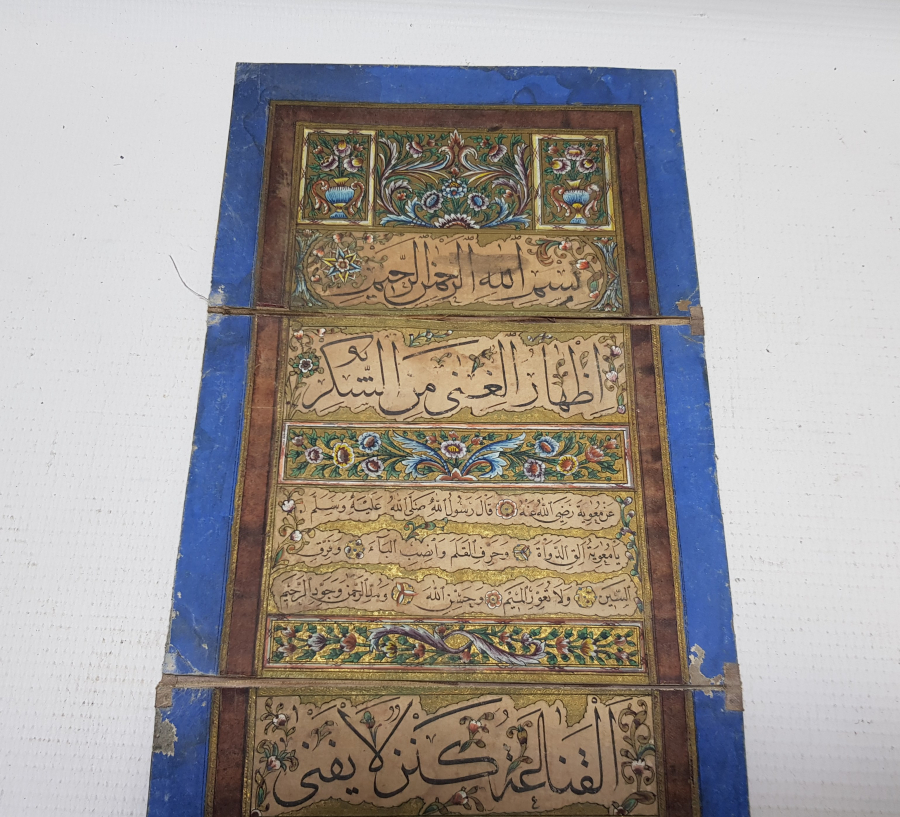 بسم الله الرحمن الرحيم
اظهار الغنى من الشكر
عن معوية رضى الله عنه قال رسول الله صلى الله عليه وسلم
يا معوية الق الدواة وحرف القلم وانصب الباء وفرق
السين ولا تعور الميم وحسن الله ومد الرحمن وجود الرحيم
القناعة كنز لا يفنى